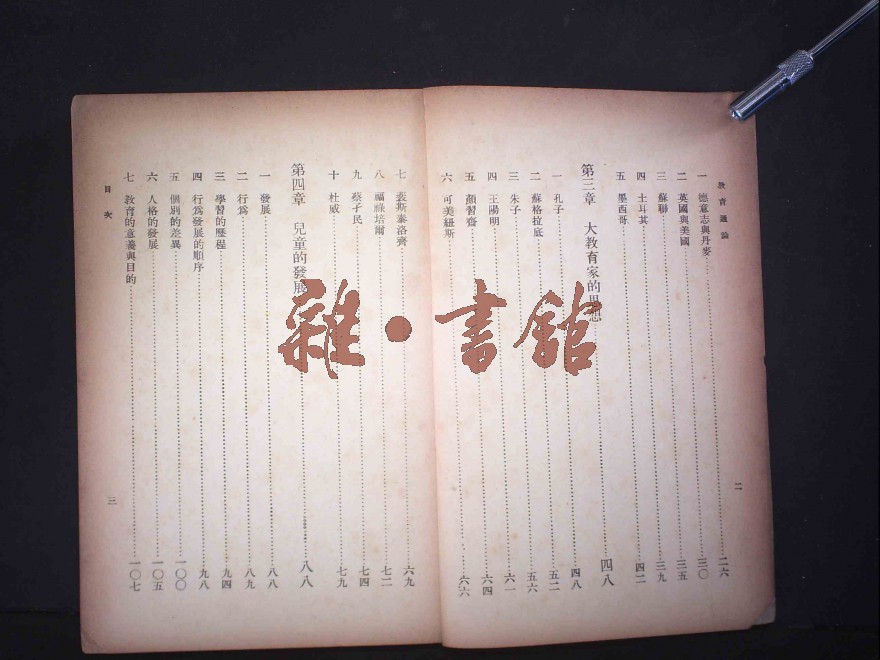 教育通論
一 德意志與丹麥 二六
二 英國與美國 三〇
三 蘇聯 三五
四 土耳其 三九
五 墨西哥 四二
第三章 大教育家的思想 四八
一 孔子 四八
二 蘇格拉底 五二
三 朱子 五六
四 王陽明 六一
五 顏習齋 六四
六 可美紐斯 六六
二
七 裴斯泰洛齊 六九
八 福祿培爾 七二
九 蔡孑民 七四
十 杜威 七九
第四章 兒童的發展 八八
一 發展 八八
二 行為 八九
三 學習的歷程 九四
四 行為發展的順序 九八
五 個別的差異 一〇〇
六 人格的發展 一〇五
七 教育的意義與目的 一〇七
目次
三
雜·書館